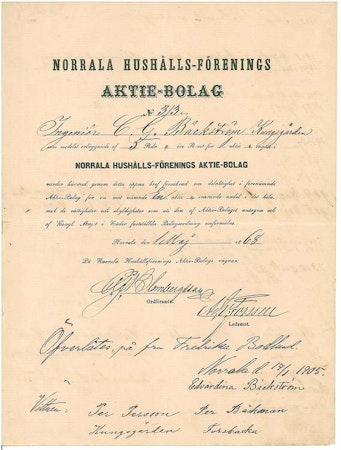 NORRALA HUSHÅLLS-FÖRENINGS
AKTIE-BOLAG
№ 313.
Ingeniör C. G. Bäckström Kungsgården
som medelst erläggande af 5 R:dr
NORRALA HUSHÅLLS-FÖRENINGS AKTIE-BOLAG
varder härmed genom detta öppna bref försäkrad om delaktighet i förenämnde
Aktie-Bolag för en mot nämnde En aktie svarande andel i det hela,
med de rättigheter och skyldigheter som uti den af Aktie-Bolaget antagna och
af Kongl. Maj:t i Nåder fastställda Bolagsordning omförmäles.
Norrala den 1 Maj 1868.
På Norrala Hushållsförenings Aktie-Bolags vägnar:
Ordförande.
Ledamot.
Öfverlåtes på fru Fredrika
Norrala d. 1905.
Edvardina Bäckström
Vittnen: Per Persson Per Bäckman
Kungsgården Forsbacka